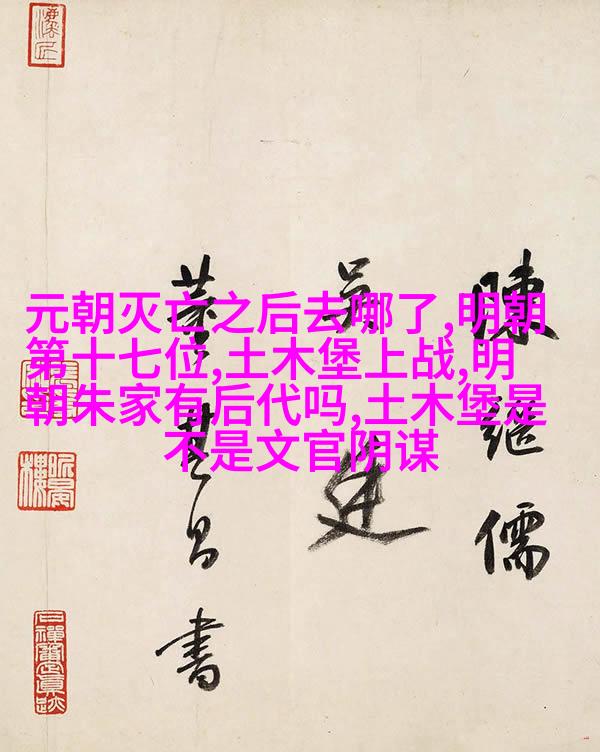 元朝灭亡之后去哪了,明朝
第十七位,土木堡上战,明
朝朱家有后代吗,土木堡是
不是文官阴谋
陳繼儒
吳廷
董其昌書